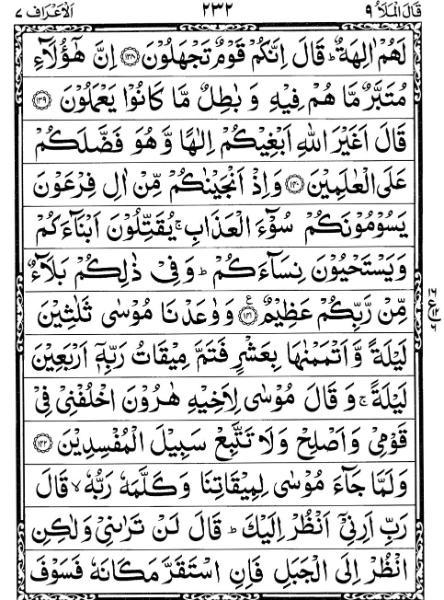 قَالَ الْمَلَاُ ٩ ٢٣٢ اَلْاَعْرَاف ٧
لَهُمْ اٰلِهَةٌ ؕ قَالَ اِنَّكُمْ قَوْمٌ تَجْهَلُوْنَ ﴿۱۳۸﴾ اِنَّ هٰۤؤُلَآءِ
مُتَبَّرٌ مَّا هُمْ فِيْهِ وَ بٰطِلٌ مَّا كَانُوْا يَعْمَلُوْنَ ﴿۱۳۹﴾
قَالَ اَغَيْرَ اللّٰهِ اَبْغِيْكُمْ اِلٰهًا وَّ هُوَ فَضَّلَكُمْ
عَلَى الْعٰلَمِيْنَ ﴿۱۴۰﴾ وَ اِذْ اَنْجَيْنٰكُمْ مِّنْ اٰلِ فِرْعَوْنَ
يَسُوْمُوْنَكُمْ سُوْٓءَ الْعَذَابِ ۚ يُقَتِّلُوْنَ اَبْنَآءَكُمْ
وَ يَسْتَحْيُوْنَ نِسَآءَكُمْ ؕ وَ فِيْ ذٰلِكُمْ بَلَآءٌ
مِّنْ رَّبِّكُمْ عَظِيْمٌ ﴿۱۴۱﴾ ع وَ وٰعَدْنَا مُوْسٰى ثَلٰثِيْنَ
لَيْلَةً وَّ اَتْمَمْنٰهَا بِعَشْرٍ فَتَمَّ مِيْقَاتُ رَبِّهٖۤ اَرْبَعِيْنَ
لَيْلَةً ۚ وَ قَالَ مُوْسٰى لِاَخِيْهِ هٰرُوْنَ اخْلُفْنِيْ فِيْ
قَوْمِيْ وَ اَصْلِحْ وَ لَا تَتَّبِعْ سَبِيْلَ الْمُفْسِدِيْنَ ﴿۱۴۲﴾
وَ لَمَّا جَآءَ مُوْسٰى لِمِيْقَاتِنَا وَ كَلَّمَهٗ رَبُّهٗ ۙ قَالَ
رَبِّ اَرِنِيْۤ اَنْظُرْ اِلَيْكَ ؕ قَالَ لَنْ تَرٰىنِيْ وَ لٰكِنِ
انْظُرْ اِلَى الْجَبَلِ فَاِنِ اسْتَقَرَّ مَكَانَهٗ فَسَوْفَ